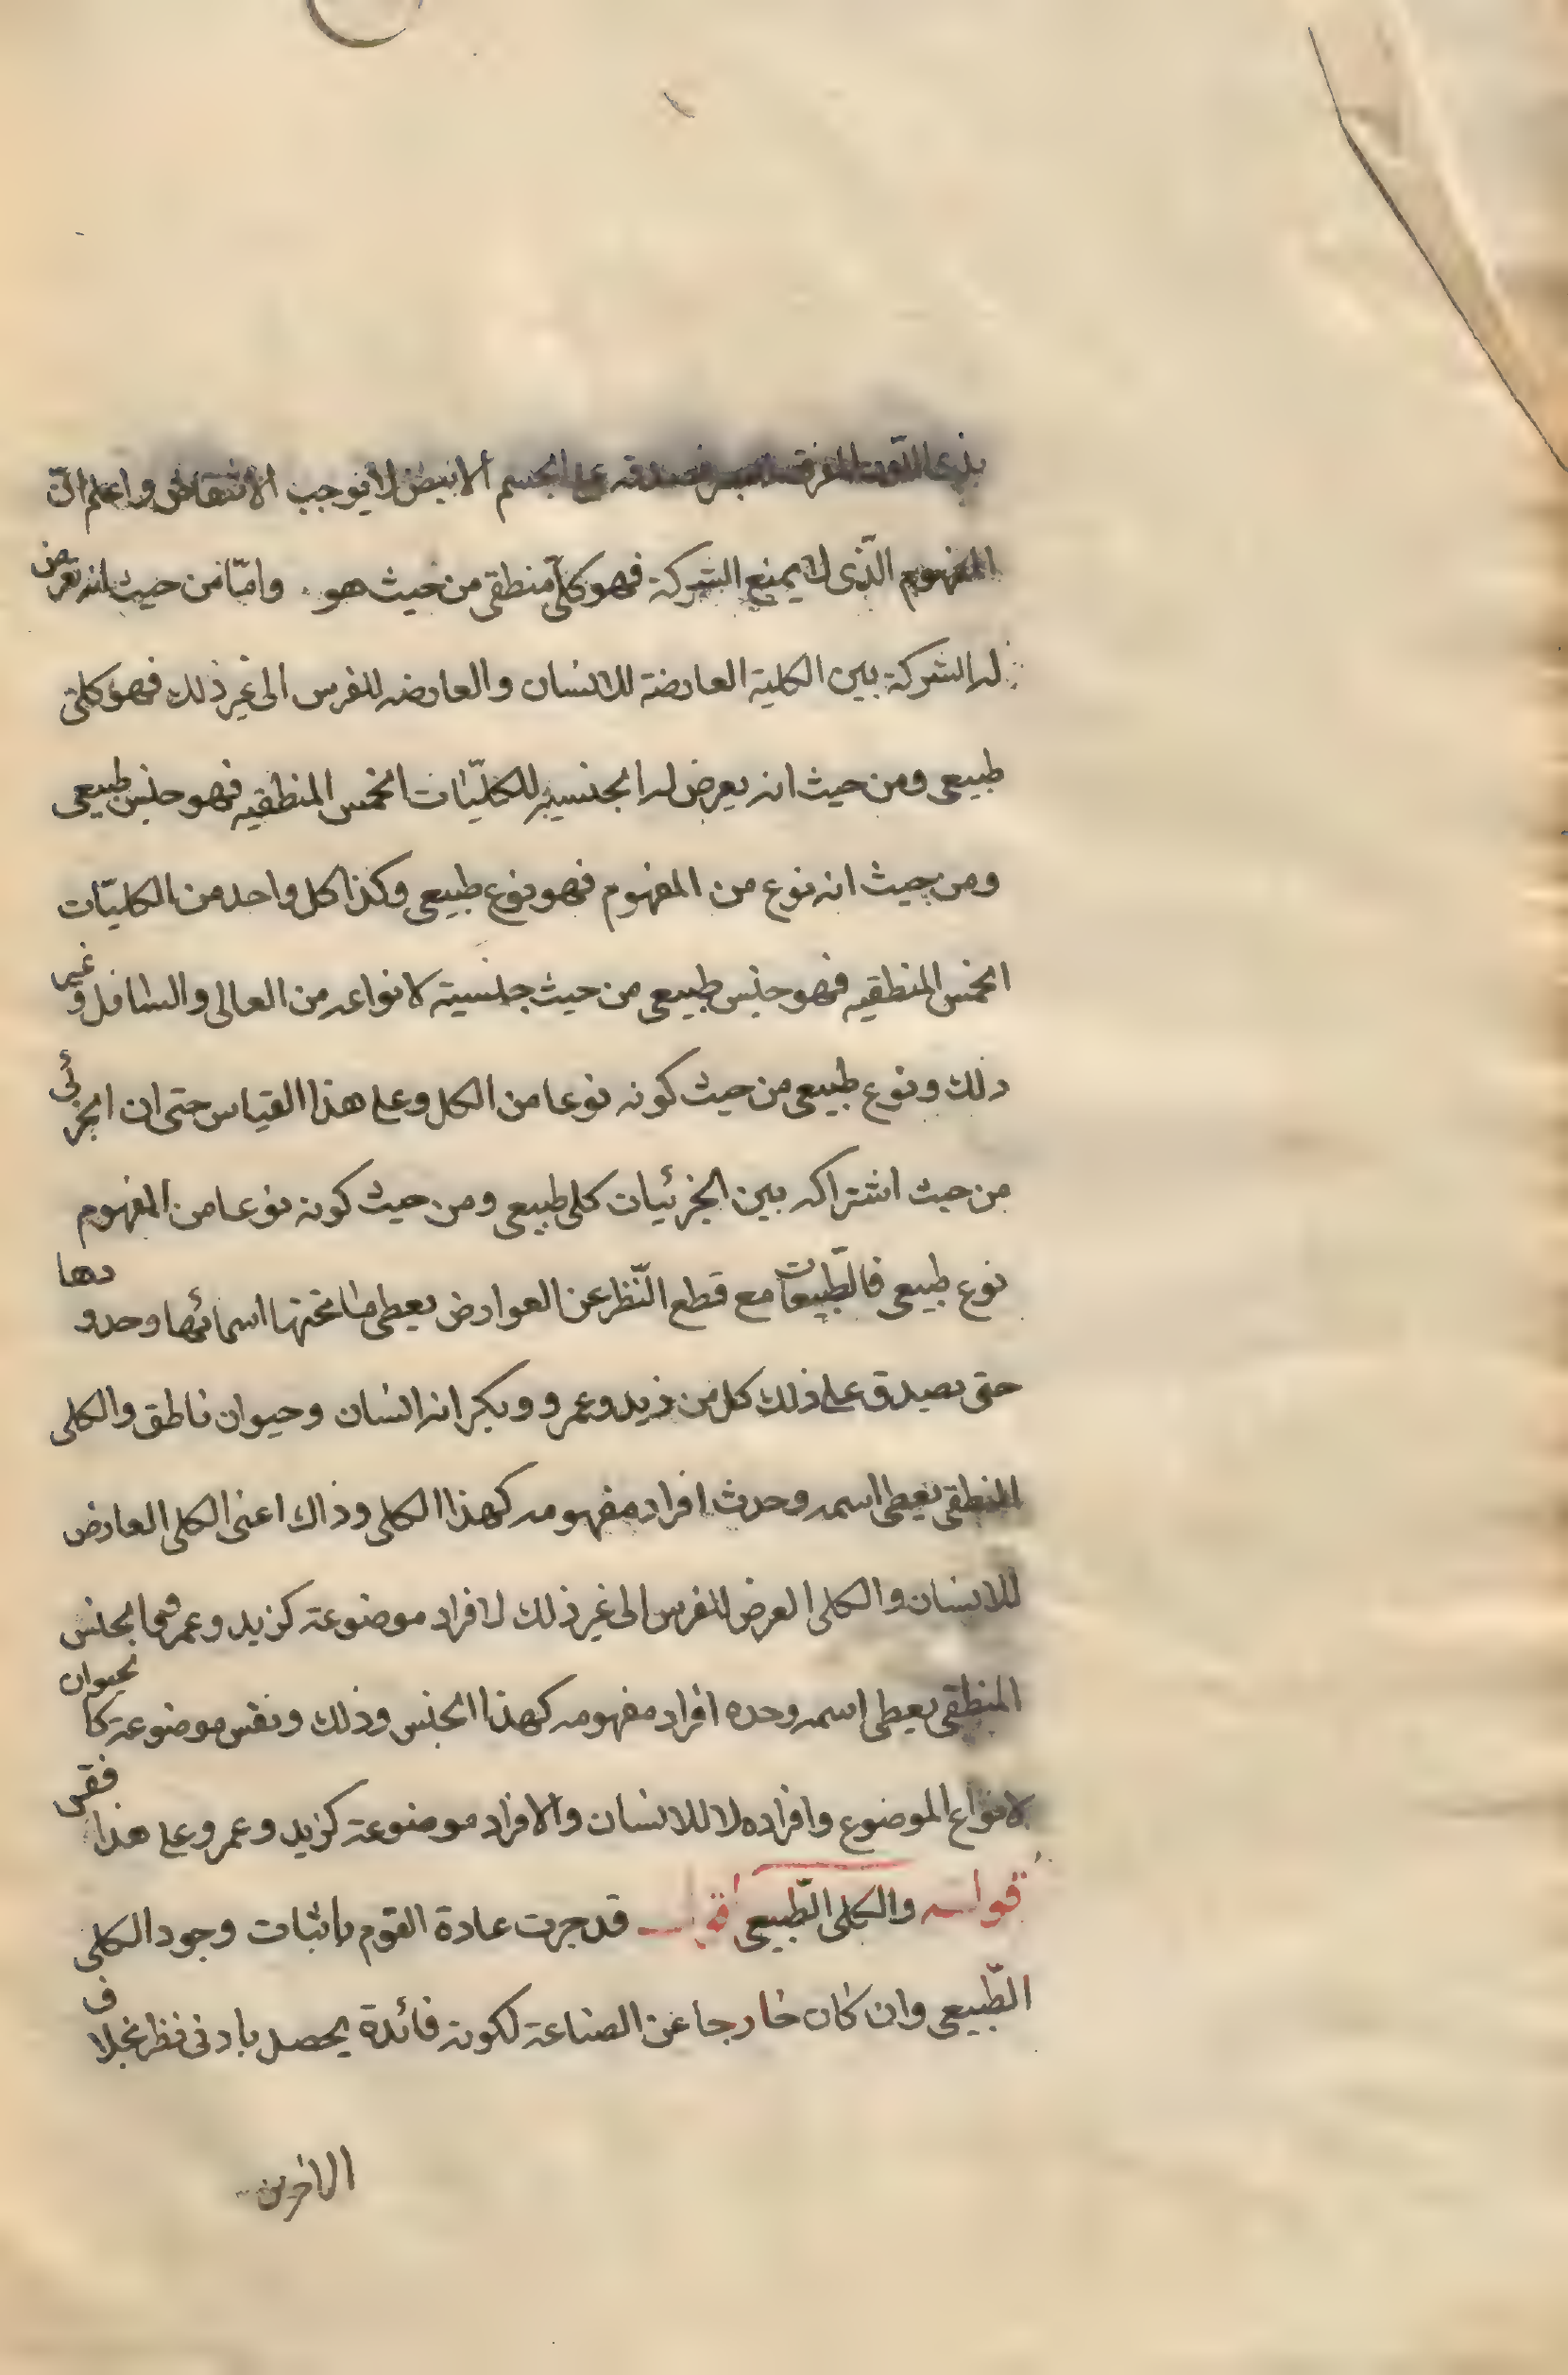 بذى اللون المفرق للبصر فصدقه على الجسم الابيض لا يوجب الانتقاض واعلم انّ
المفهوم الّذى لا يمنع الشركة فهو كلّى منطقى من حيث هو . وامّا من حيث انه تعرض
له الشركة بين الكلية العارضة للانسان والعارضه للفرس الى غير ذلك فهو كلّى
طبيعى ومن حيث انه يعرض له الجنسيه للكلّيات الخمس المنطقيه فهو جنس طبيعى
ومن حيث انه نوع من المفهوم فهو نوع طبيعى وكذا كل واحد من الكليّات
الخمس المنطقيه فهو جنس طبيعى من حيث جنسيته لانواعه من العالى والسافل و غير
ذلك ونوع طبيعى من حيث كونه نوعا من الكل وعلى هذا القياس حتى ان الجزئى
من حيث اشتراكه بين الجزئيات كلى طبيعى ومن حيث كونه نوعا من المفهوم
نوع طبيعى فالطّبيعيات مع قطع النّظر عن العوارض يعطى ما تحتها اسمائها وحدودها
حتى يصدق على ذلك كل من زيد وعمرو وبكر انه انسان وحيوان ناطق والكلى
المنطقى يعطى اسمه وحده افراد مفهومه كهذا الكلى وذاك اعنى الكلى العارض
للانسان والكلى العرض للفرس الى غير ذلك لا افراد موضوعة كزيد وعمرو الجنس
المنطقى يعطى اسمه وحده افراد مفهومه كهذا الجنس وذلك ونفس موضوعة كالحيوان
لانواع الموضوع وافراده لا للانسان والافراد موضوعة كزيد وعمرو وعلى هذا فقس
قوله والكلى الطّبيعى اقول قد جرت عادة القوم باثبات وجود الكلى
الطّبيعى وان كان خارجا عن الصناعة لكونه فائدة يحصل بادنى نظر بخلاف
الاخرين